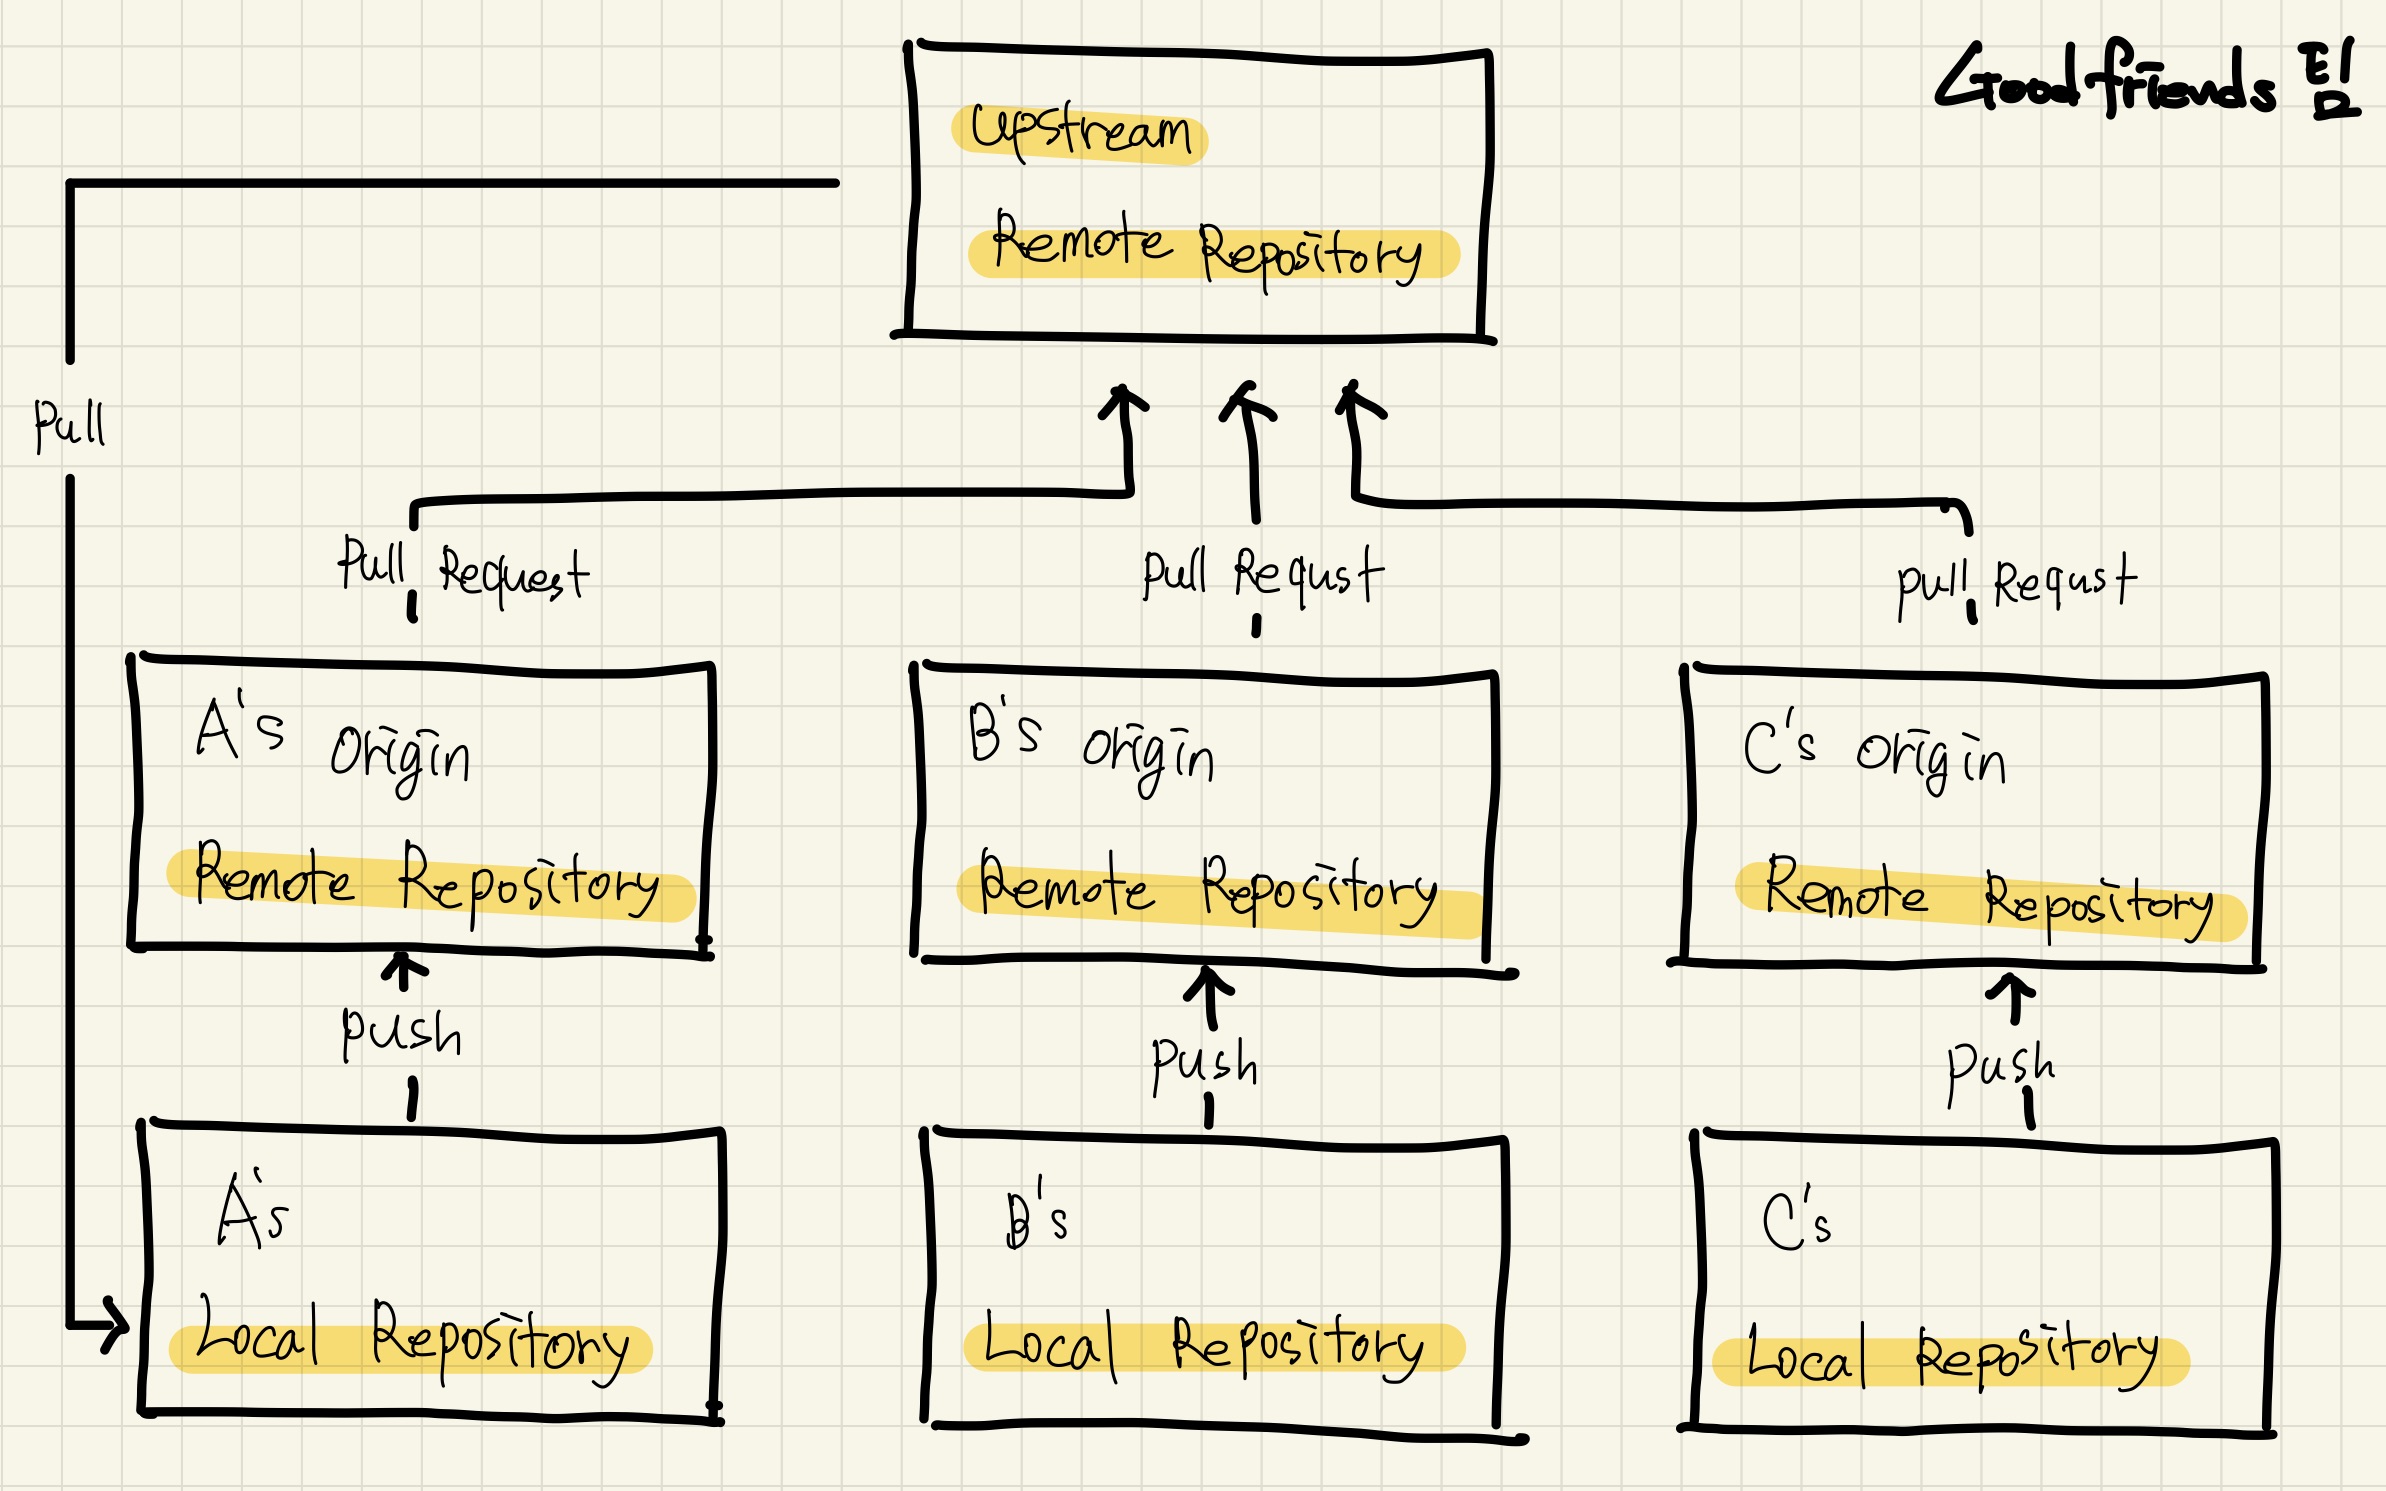 Goodfriends 팀
Upstream
Remote Repository
Pull
Pull Request
Pull Requst
Pull Requst
A's origin
Remote Repository
B's origin
Remote Repository
C's origin
Remote Repository
push
push
push
A's
Local Repository
B's
Local Repository
C's
Local Repository